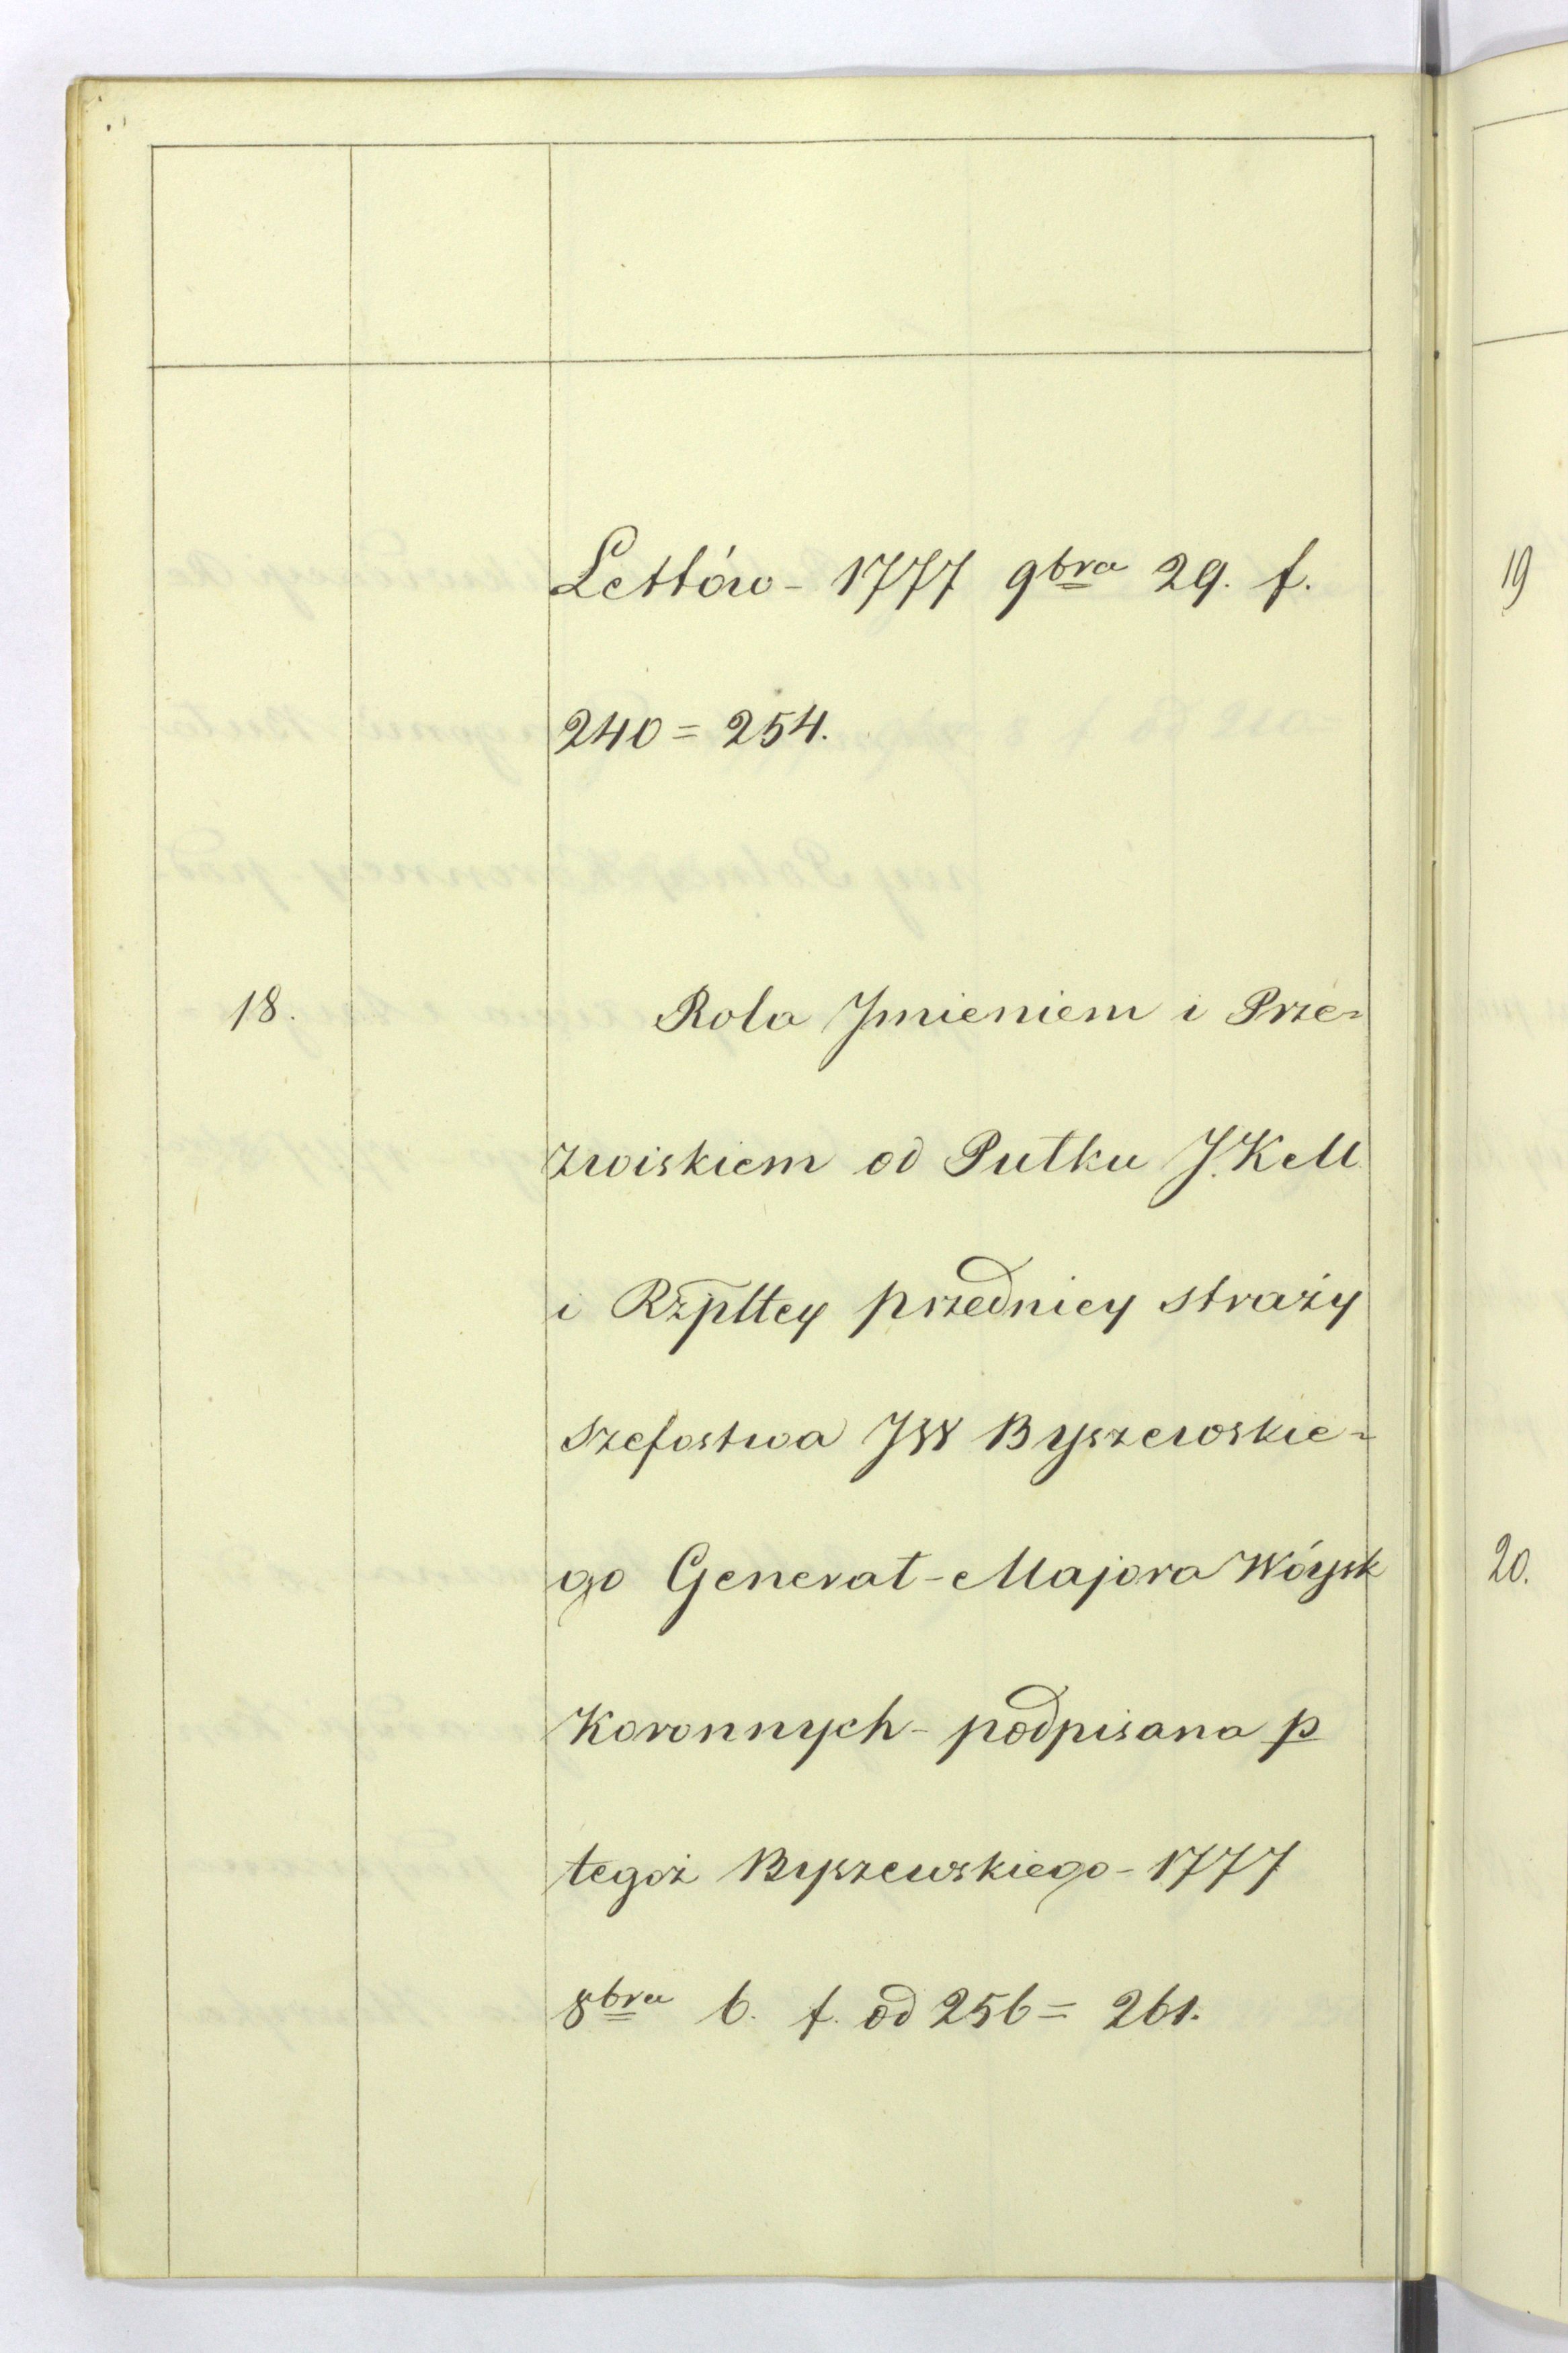 Lettów - 1777 9bra 29. f.
240 = 254.
18. Rola Jmieniem i Prze=
zwiskiem od Pułku J.K M
i Rzpltey przedniey straży
Szefostwa JW Byszewskie=
go Generał-Majora Wóysk
Koronnych - podpisana p
tegoż Byszewskiego - 1777
8bra 6. f. od 256 = 261.
19
20.